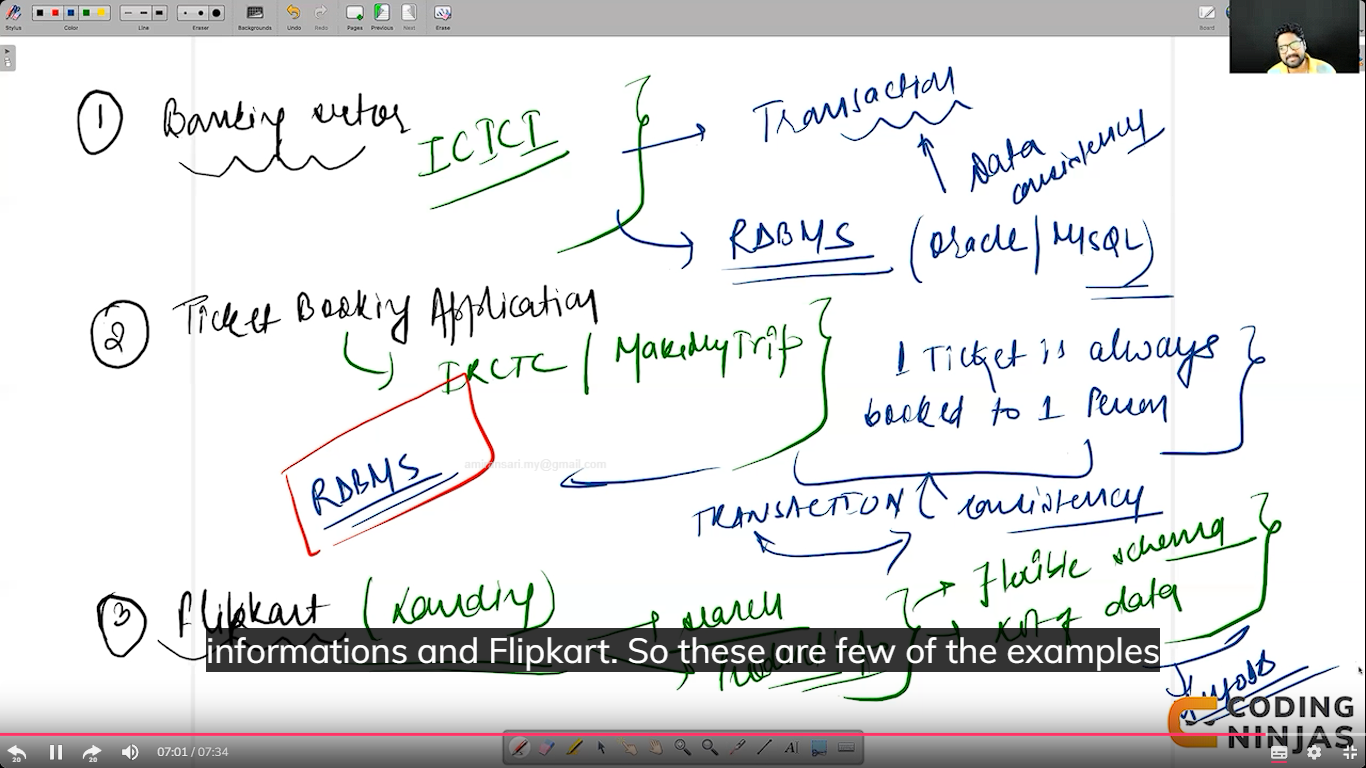 Stylus
Color
Line
Eraser
Backgrounds
Undo
Redo
Pages
Previous
Next
Erase
Board
1 Banking sector
ICICI
Transaction
Data consistency
RDBMS (Oracle/MySQL)
2 Ticket Booking Application
IRCTC / MakeMyTrip
1 Ticket is always
booked to 1 Person
RDBMS
amitansari.my@gmail.com
TRANSACTION ( consistency
3 Flipkart (Landing)
search
Product info
Flexible schema
lot of data
informations and Flipkart. So these are few of the examples
CODING
NINJAS
20
20
07:01 / 07:34